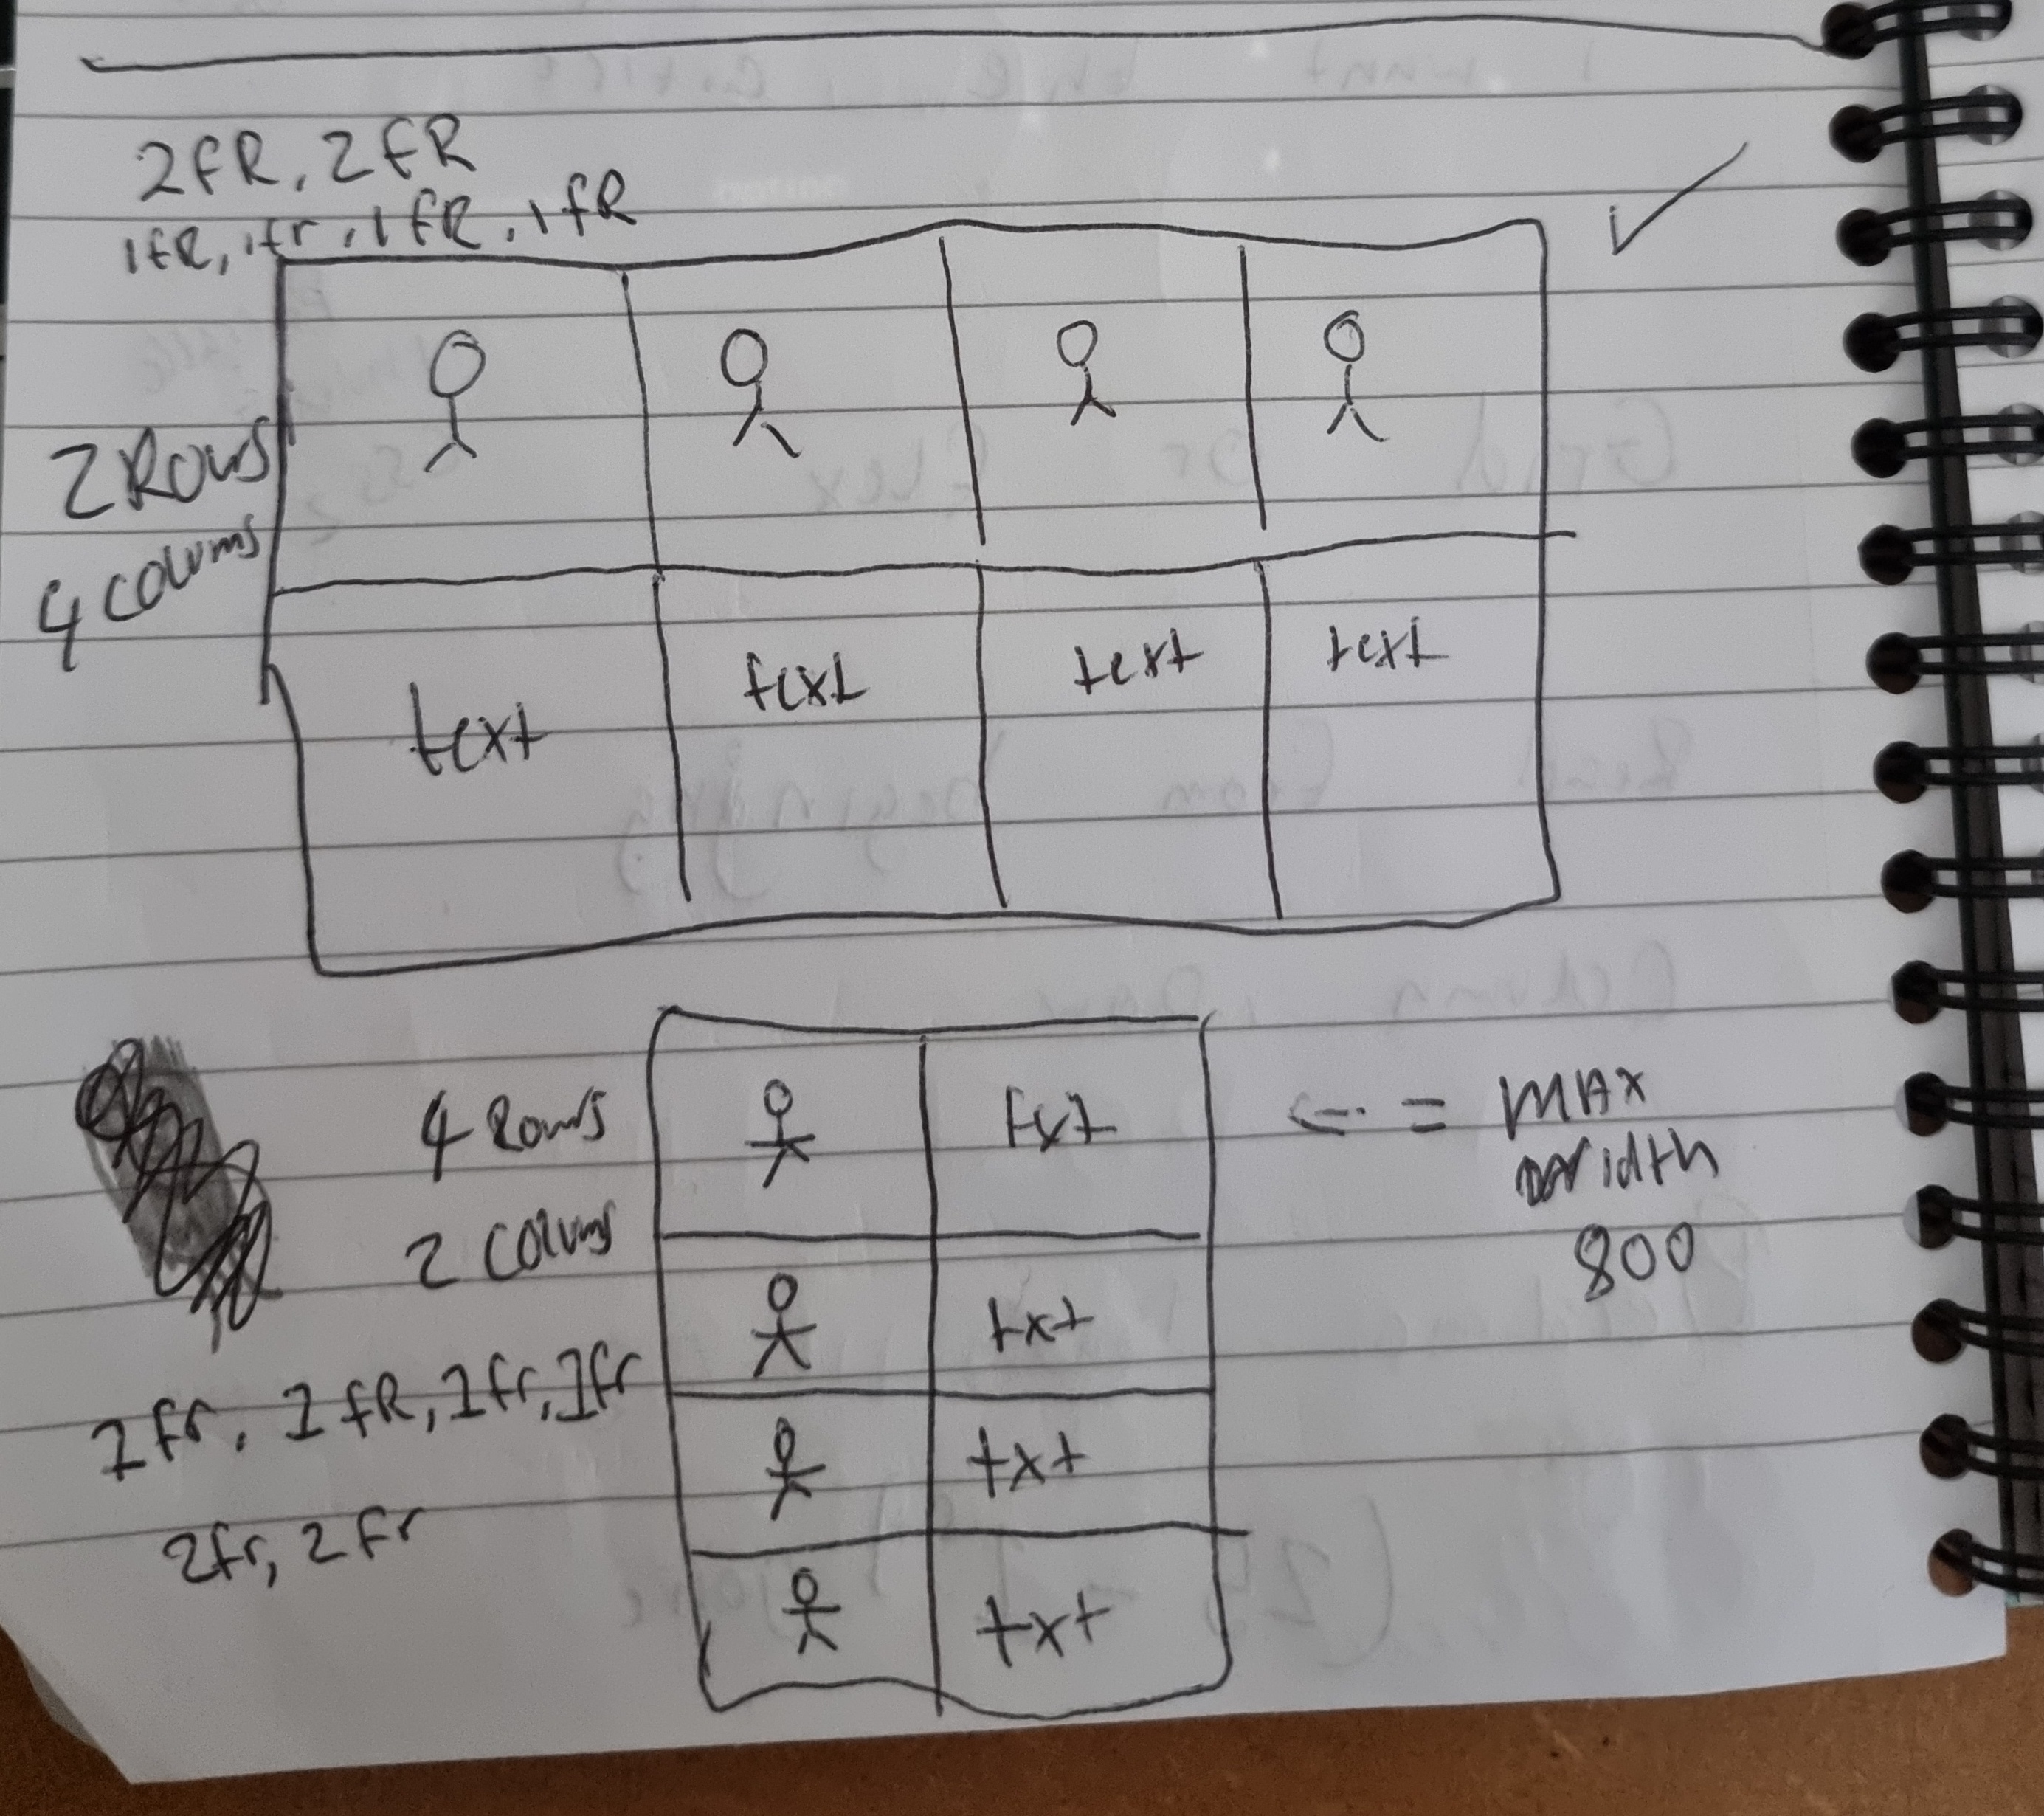 2fR, 2fR
1fR, 1fr, 1fR, 1fR
2 Rows
4 colums
text
text
text
text
4 Rows
2 colums
1fr, 1fR, 1fr, 1fr
2fr, 2fr
txt
txt
txt
txt
<-- = MAX
width
800